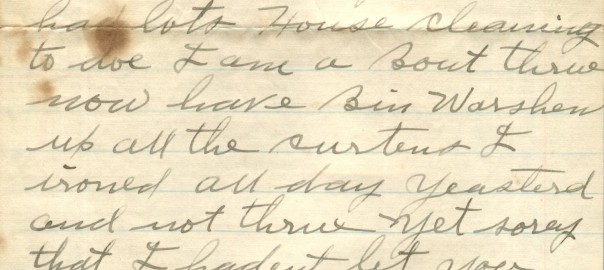 had lots House cleaning
to doe I am a bout thrue
now have Bin Warshen
up all the curtens I
ironed all day yeasterd
and not thrue yet sorey
that I hadent let your